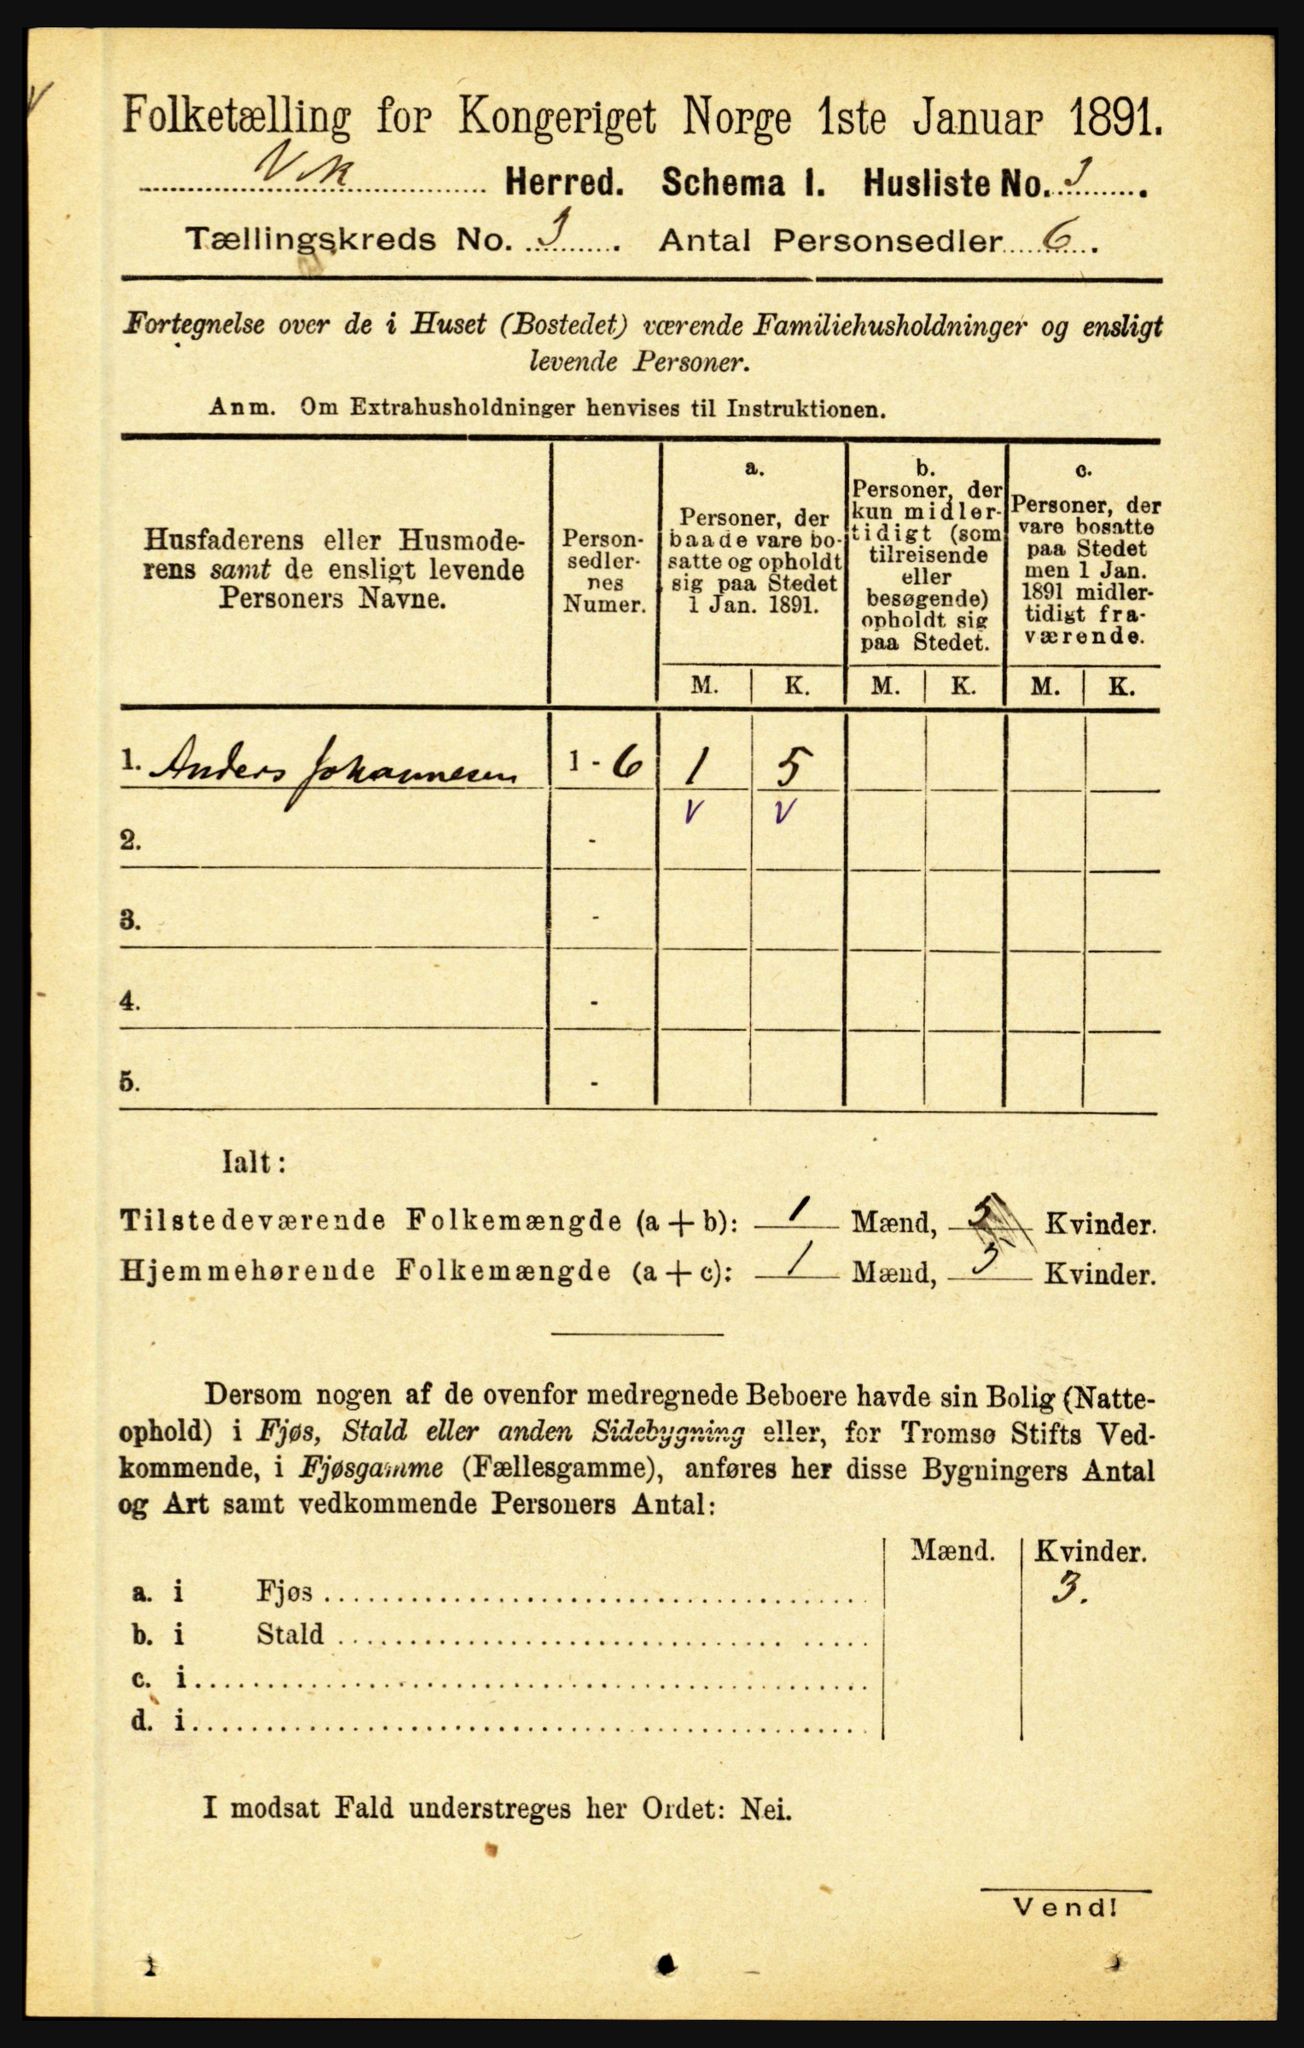 Folketælling for Kongeriget Norge 1ste Januar 1891.
Vik Herred. Schema I. Husliste No. 3.
Tællingskreds No. 3. Antal Personsedler 6.
Fortegnelse over de i Huset (Bostedet) værende Familiehusholdninger og ensligt
levende Personer.
Anm. Om Extrahusholdninger henvises til Instruktionen.
Husfaderens eller Husmode-
rens samt de ensligt levende
Personers Navne.
Person-
sedler-
nes
Numer.
a.
Personer, der
baade vare bo-
satte og opholdt
sig paa Stedet
1 Jan. 1891.
b.
Personer, der
kun midler-
tidigt (som
tilreisende
eller
besøgende)
opholdt sig
paa Stedet.
c.
Personer, der
vare bosatte
paa Stedet
men 1 Jan.
1891 midler-
tidigt fra-
værende.
M. K. M. K. M. K.
1. Anders Johannesen 1 - 6 1 5
v v
2. -
3. -
4. -
5. -
Ialt:
Tilstedeværende Folkemængde (a + b): 1 Mænd, Kvinder.
Hjemmehørende Folkemængde (a + c): 1 Mænd, Kvinder.
Dersom nogen af de ovenfor medregnede Beboere havde sin Bolig (Natte-
ophold) i Fjøs, Stald eller anden Sidebygning eller, for Tromsø Stifts Ved-
kommende, i Fjøsgamme (Fællesgamme), anføres her disse Bygningers Antal
og Art samt vedkommende Personers Antal:
Mænd. Kvinder.
a. i Fjøs 3.
b. i Stald
c. i
d. i
I modsat Fald understreges her Ordet: Nei.
Vend!